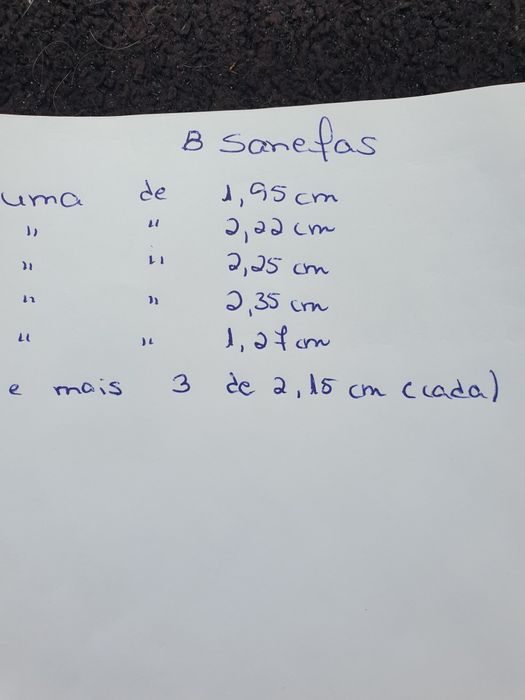 8 Sanefas
uma de 1,95 cm
" " 2,22 cm
" " 2,25 cm
" " 2,35 cm
" " 1,27 cm
e mais 3 de 2,15 cm (cada)